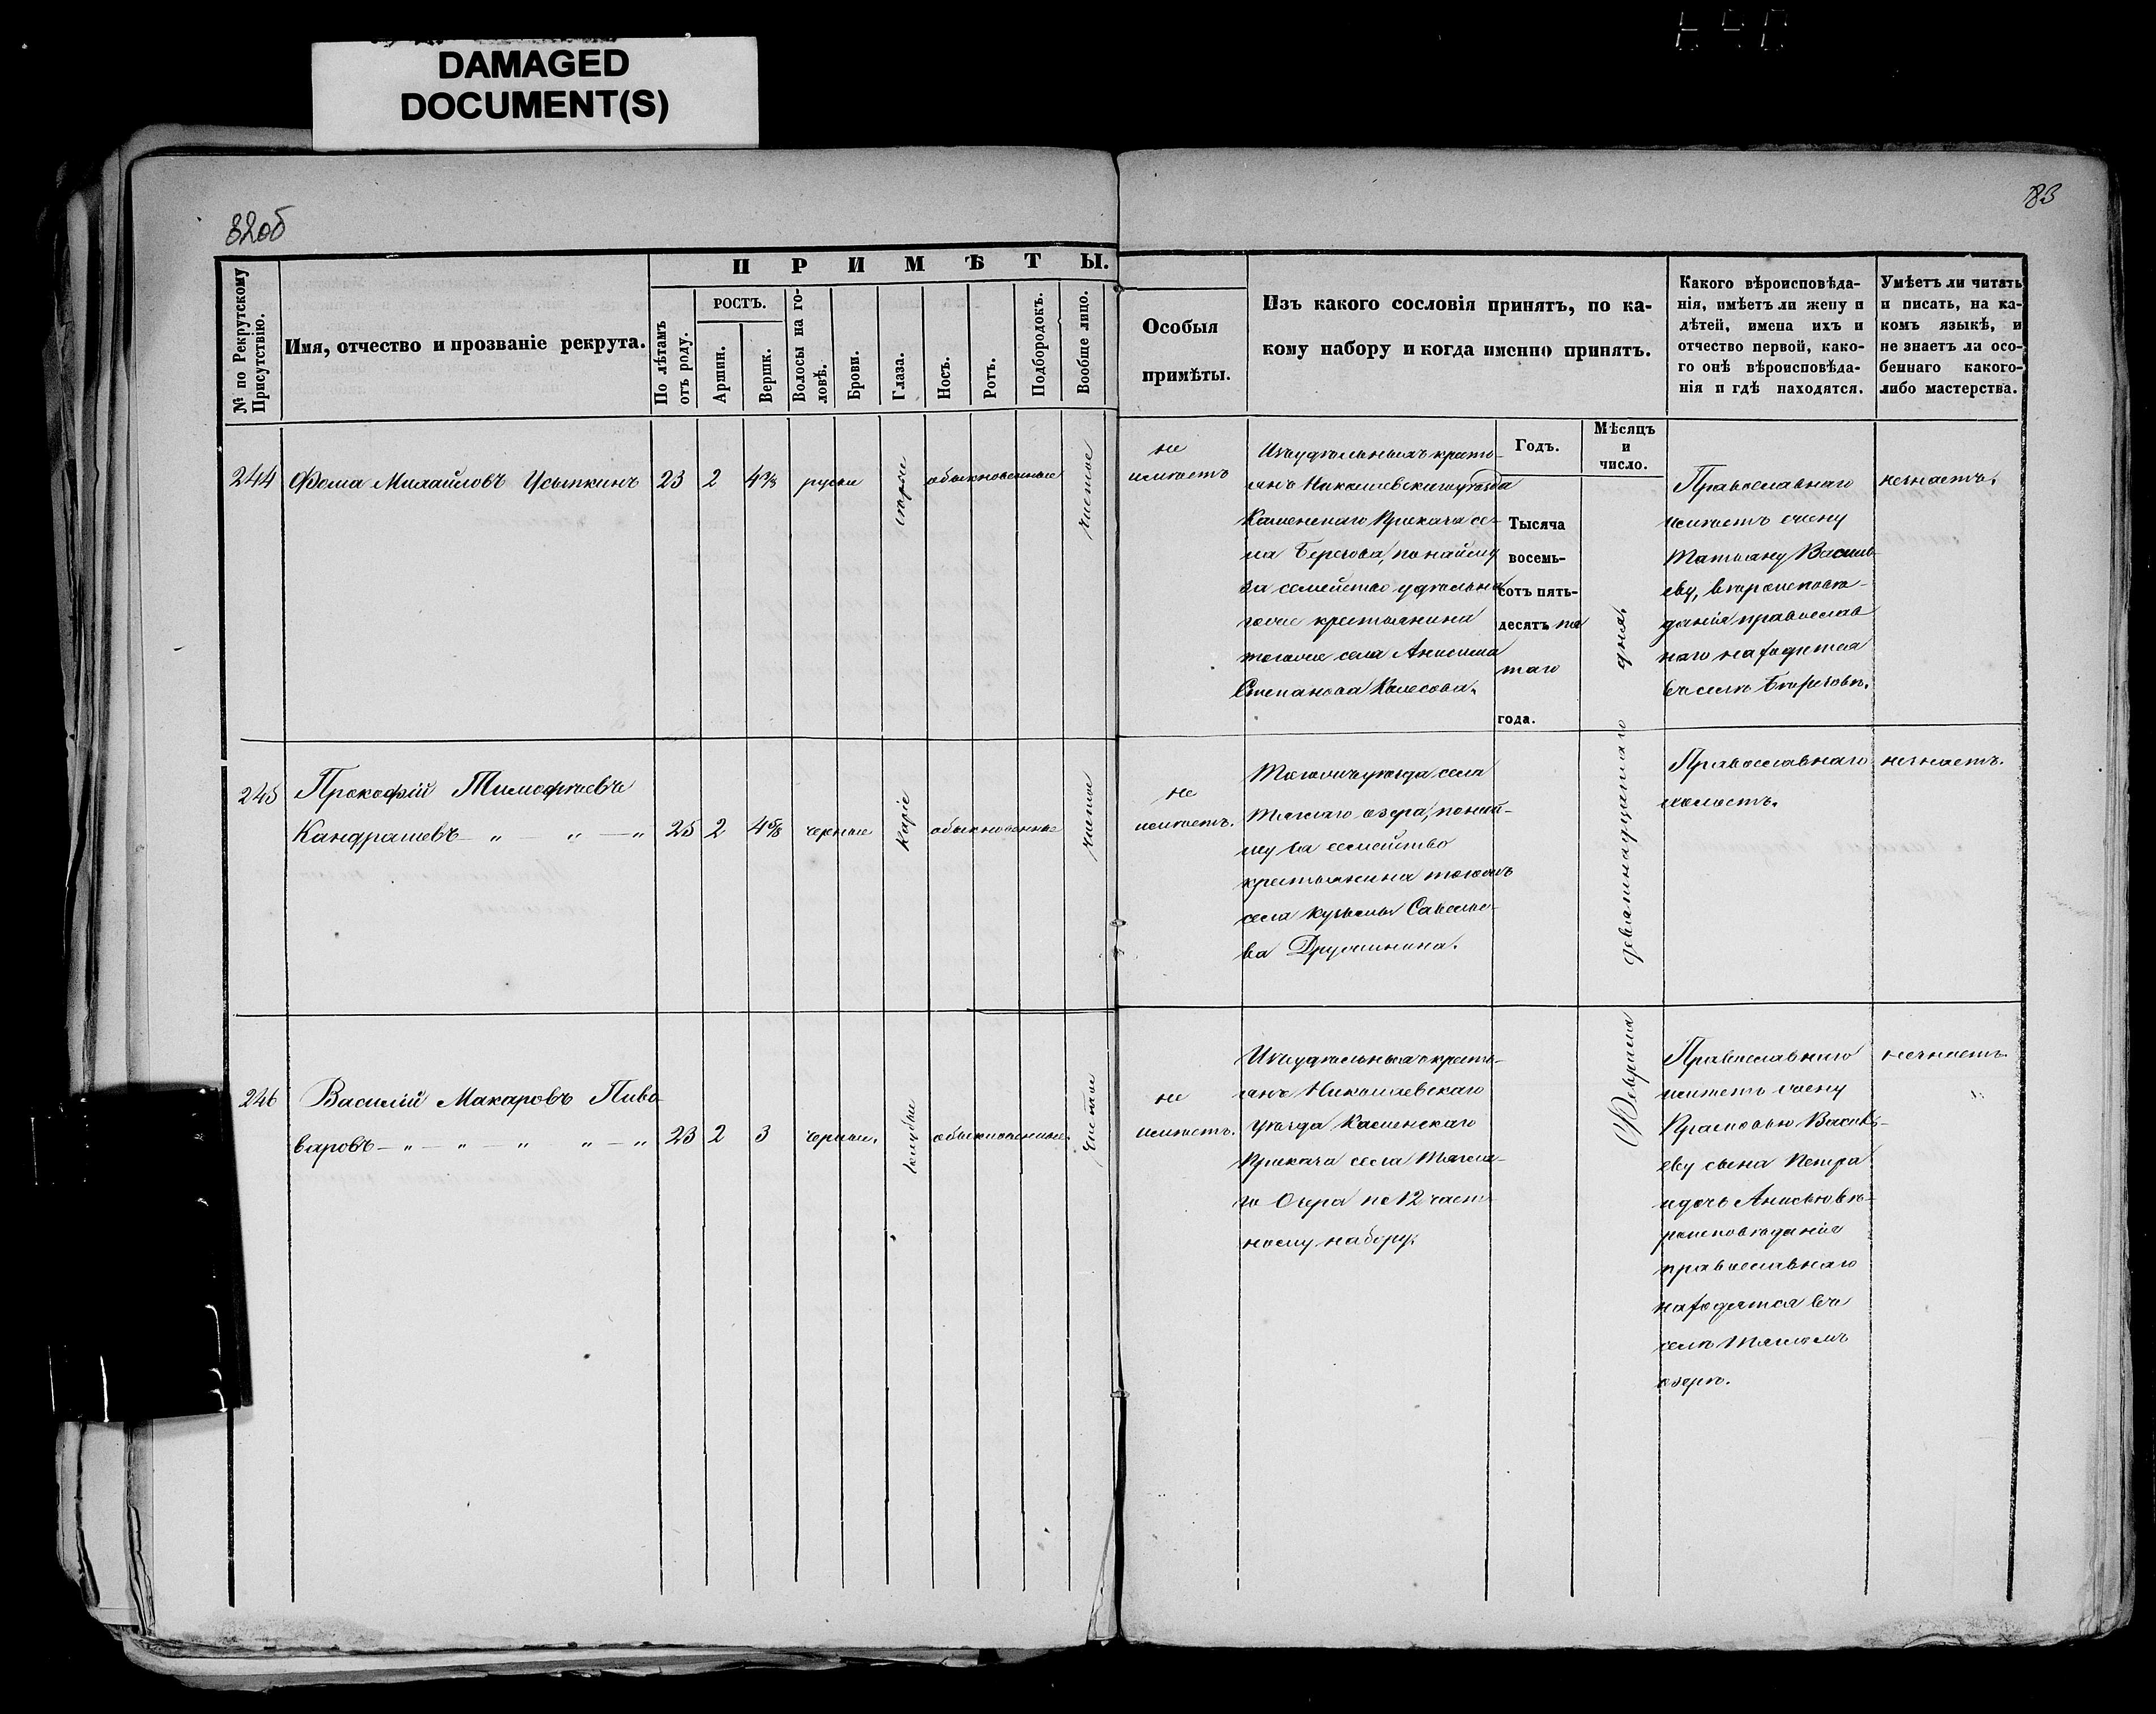 DAMAGED
DOCUMENT(S)
82об
83
ПРИМѢТЫ.
№ по Рекрутскому Присутствію.
Имя, отчество и прозваніе рекрута.
По лѣтамъ отъ роду.
РОСТЪ.
Аршин.
Вершк.
Волосы на головѣ.
Брови.
Глаза.
Носъ.
Ротъ.
Подбородокъ.
Вообще лицо.
Особыя
примѣты.
Изъ какого сословія принятъ, по ка-
кому набору и когда именно принятъ.
Какого вѣроисповѣда-
нія, имѣетъ ли жену и
дѣтей, имена ихъ и
отчество первой, како-
го онѣ вѣроисповѣда-
нія и гдѣ находятся.
Умѣетъ ли читать
и писать, на ка-
комъ языкѣ, и
не знаетъ ли осо-
беннаго какого-
либо мастерства.
Годъ.
Мѣсяцъ
и
число.
244 Фома Михайловъ Усыпкинъ 23 2 4⅜ русые сѣрые обыкновенные чистое
не
имѣетъ
Изъ удѣльныхъ кресть-
янъ Николаевскаго уѣзда
Каменскаго Приказа се-
ла Берегова, по найму
за семейство удѣльна
гоже крестьянина
тогоже села Анисима
Степанова Колесова.
Тысяча
восемь-
сотъ пять-
десятъ пя
таго
года.
Февраля девятнадцатаго дня.
Православнаго
имѣетъ жену
Татьяну Василь-
еву, вѣроисповѣ-
данія православ
наго находится
въ селѣ Береговѣ.
незнаетъ.
245 Прокофій Тимофѣевъ
Кандрашевъ — „ — „ — „ 25 2 4⅝ черные каріе обыкновенные чистое
не
имѣетъ.
Тогожъ уѣзда села
Тяглаго озера, по най-
му за семейство
крестьянина тогожъ
села Кузьмы Савелье-
ва Дружинина.
Православнаго
холостъ.
незнаетъ.
246 Василій Макаровъ Пиво
варовъ — „ — „ — „ „ — „ 23 2 3 черные. голубые обыкновенные. чистое
не
имѣетъ.
Изъ удѣльныхъ кресть-
янъ Николаевскаго
уѣзда Каменскаго
Приказа села Тягла-
го Озера по 12 част-
ному набору.
Православнаго
имѣетъ жену
Прасковью Василь-
еву сына Петра
и дочь Анисью вѣ-
роисповѣданія
православнаго
находятся въ
селѣ Тягломъ
озерѣ.
незнаетъ